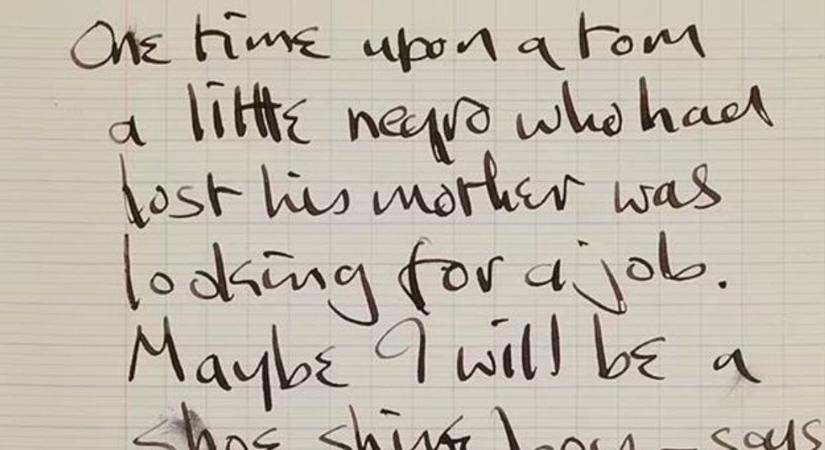 One time upon a tom
a little negro who had
lost his mother was
looking for a job.
Maybe I will be a
shoe shine boy - says